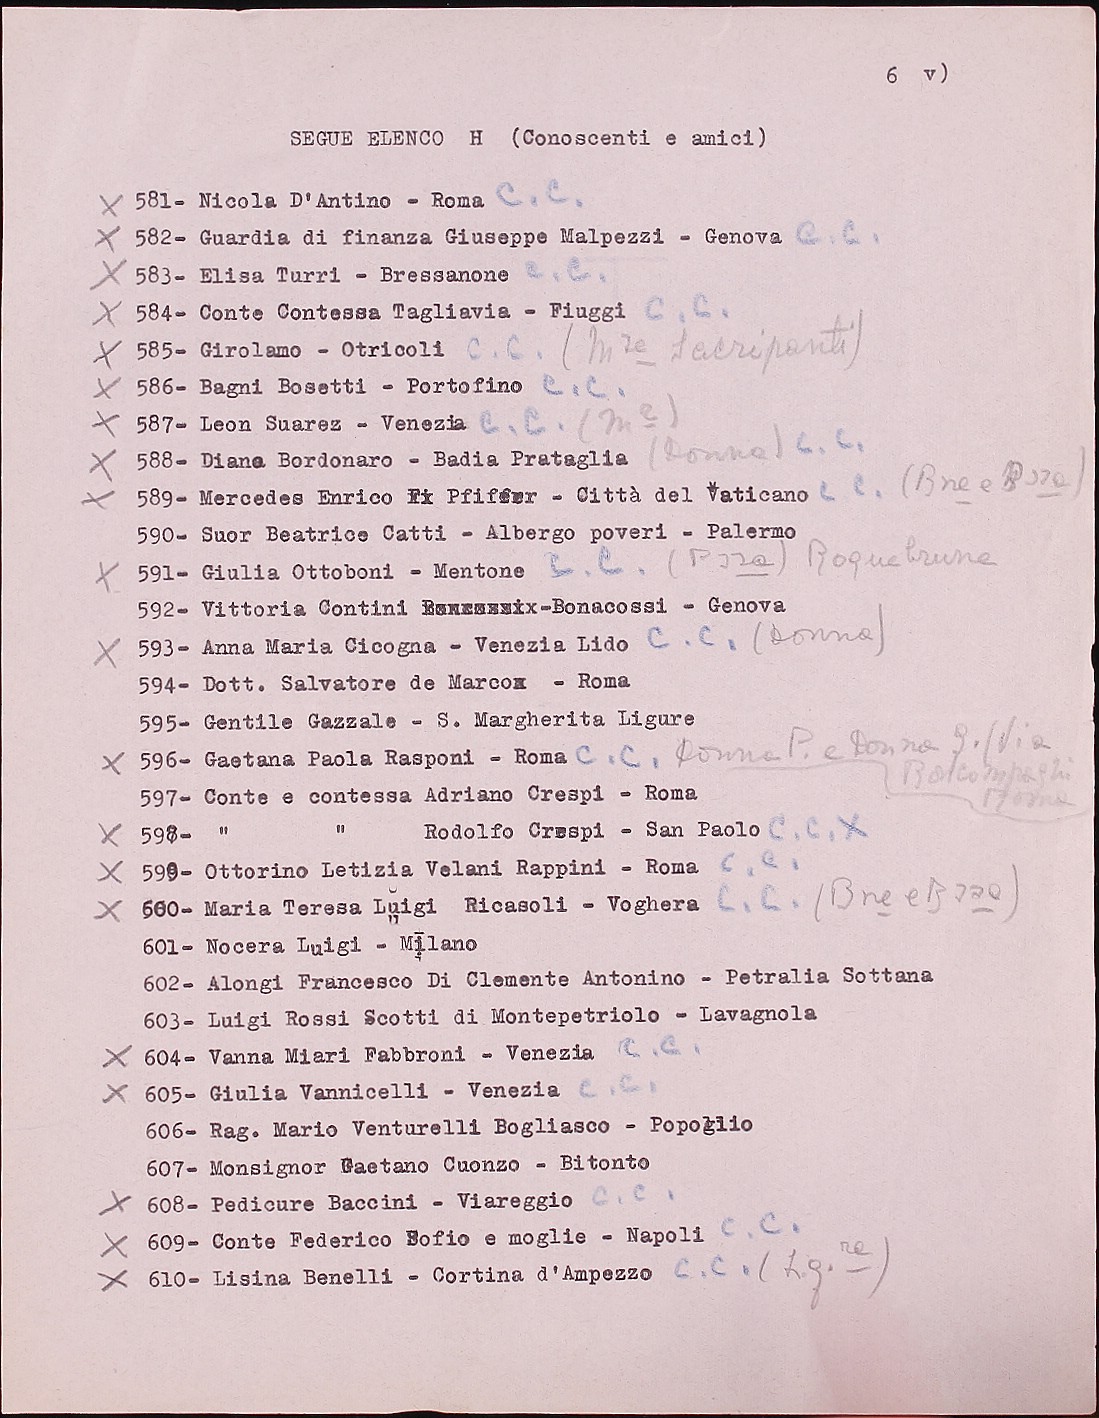 6 v)
SEGUE ELENCO H (Conoscenti e amici)
X 581- Nicola D'Antino - Roma C.C.
X 582- Guardia di finanza Giuseppe Malpezzi - Genova C.C.
X 583- Elisa Turri - Bressanone C.C.
X 584- Conte Contessa Tagliavia - Fiuggi C.C.
X 585- Girolamo - Otricoli C.C. (Mse Sacripanti)
X 586- Bagni Bosetti - Portofino C.C.
X 587- Leon Suarez - Venezia C.C. (Me)
X 588- Diana Bordonaro - Badia Prataglia (Donna) C.C.
X 589- Mercedes Enrico Pfiffer - Città del Vaticano C.C. (Bne e Bssa)
590- Suor Beatrice Catti - Albergo poveri - Palermo
X 591- Giulia Ottoboni - Mentone C.C. (Pssa) Roquebrune
592- Vittoria Contini -Bonacossi - Genova
X 593- Anna Maria Cicogna - Venezia Lido C.C. (Donna)
594- Dott. Salvatore de Marco - Roma
595- Gentile Gazzale - S. Margherita Ligure
X 596- Gaetana Paola Rasponi - Roma C.C. Donna P. e Donna G. (Via
Boncompagni
Roma
597- Conte e contessa Adriano Crespi - Roma
X 598- " " Rodolfo Crespi - San Paolo C.C. X
X 599- Ottorino Letizia Velani Rappini - Roma C.C.
X 600- Maria Teresa Luigi Ricasoli - Voghera C.C. (Bne e Bssa)
601- Nocera Luigi - Milano
602- Alongi Francesco Di Clemente Antonino - Petralia Sottana
603- Luigi Rossi Scotti di Montepetriolo - Lavagnola
X 604- Vanna Miari Fabbroni - Venezia C.C.
X 605- Giulia Vannicelli - Venezia C.C.
606- Rag. Mario Venturelli Bogliasco - Popoglio
607- Monsignor Gaetano Cuonzo - Bitonto
X 608- Pedicure Baccini - Viareggio C.C.
X 609- Conte Federico Sofio e moglie - Napoli C.C.
X 610- Lisina Benelli - Cortina d'Ampezzo C.C.